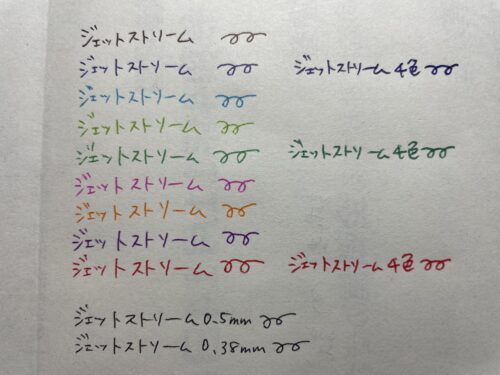 ジェットストリーム
ジェットストリーム ジェットストリーム4色
ジェットストリーム
ジェットストリーム
ジェットストリーム ジェットストリーム4色
ジェットストリーム
ジェットストリーム
ジェットストリーム
ジェットストリーム ジェットストリーム4色
ジェットストリーム 0.5mm
ジェットストリーム 0.38mm